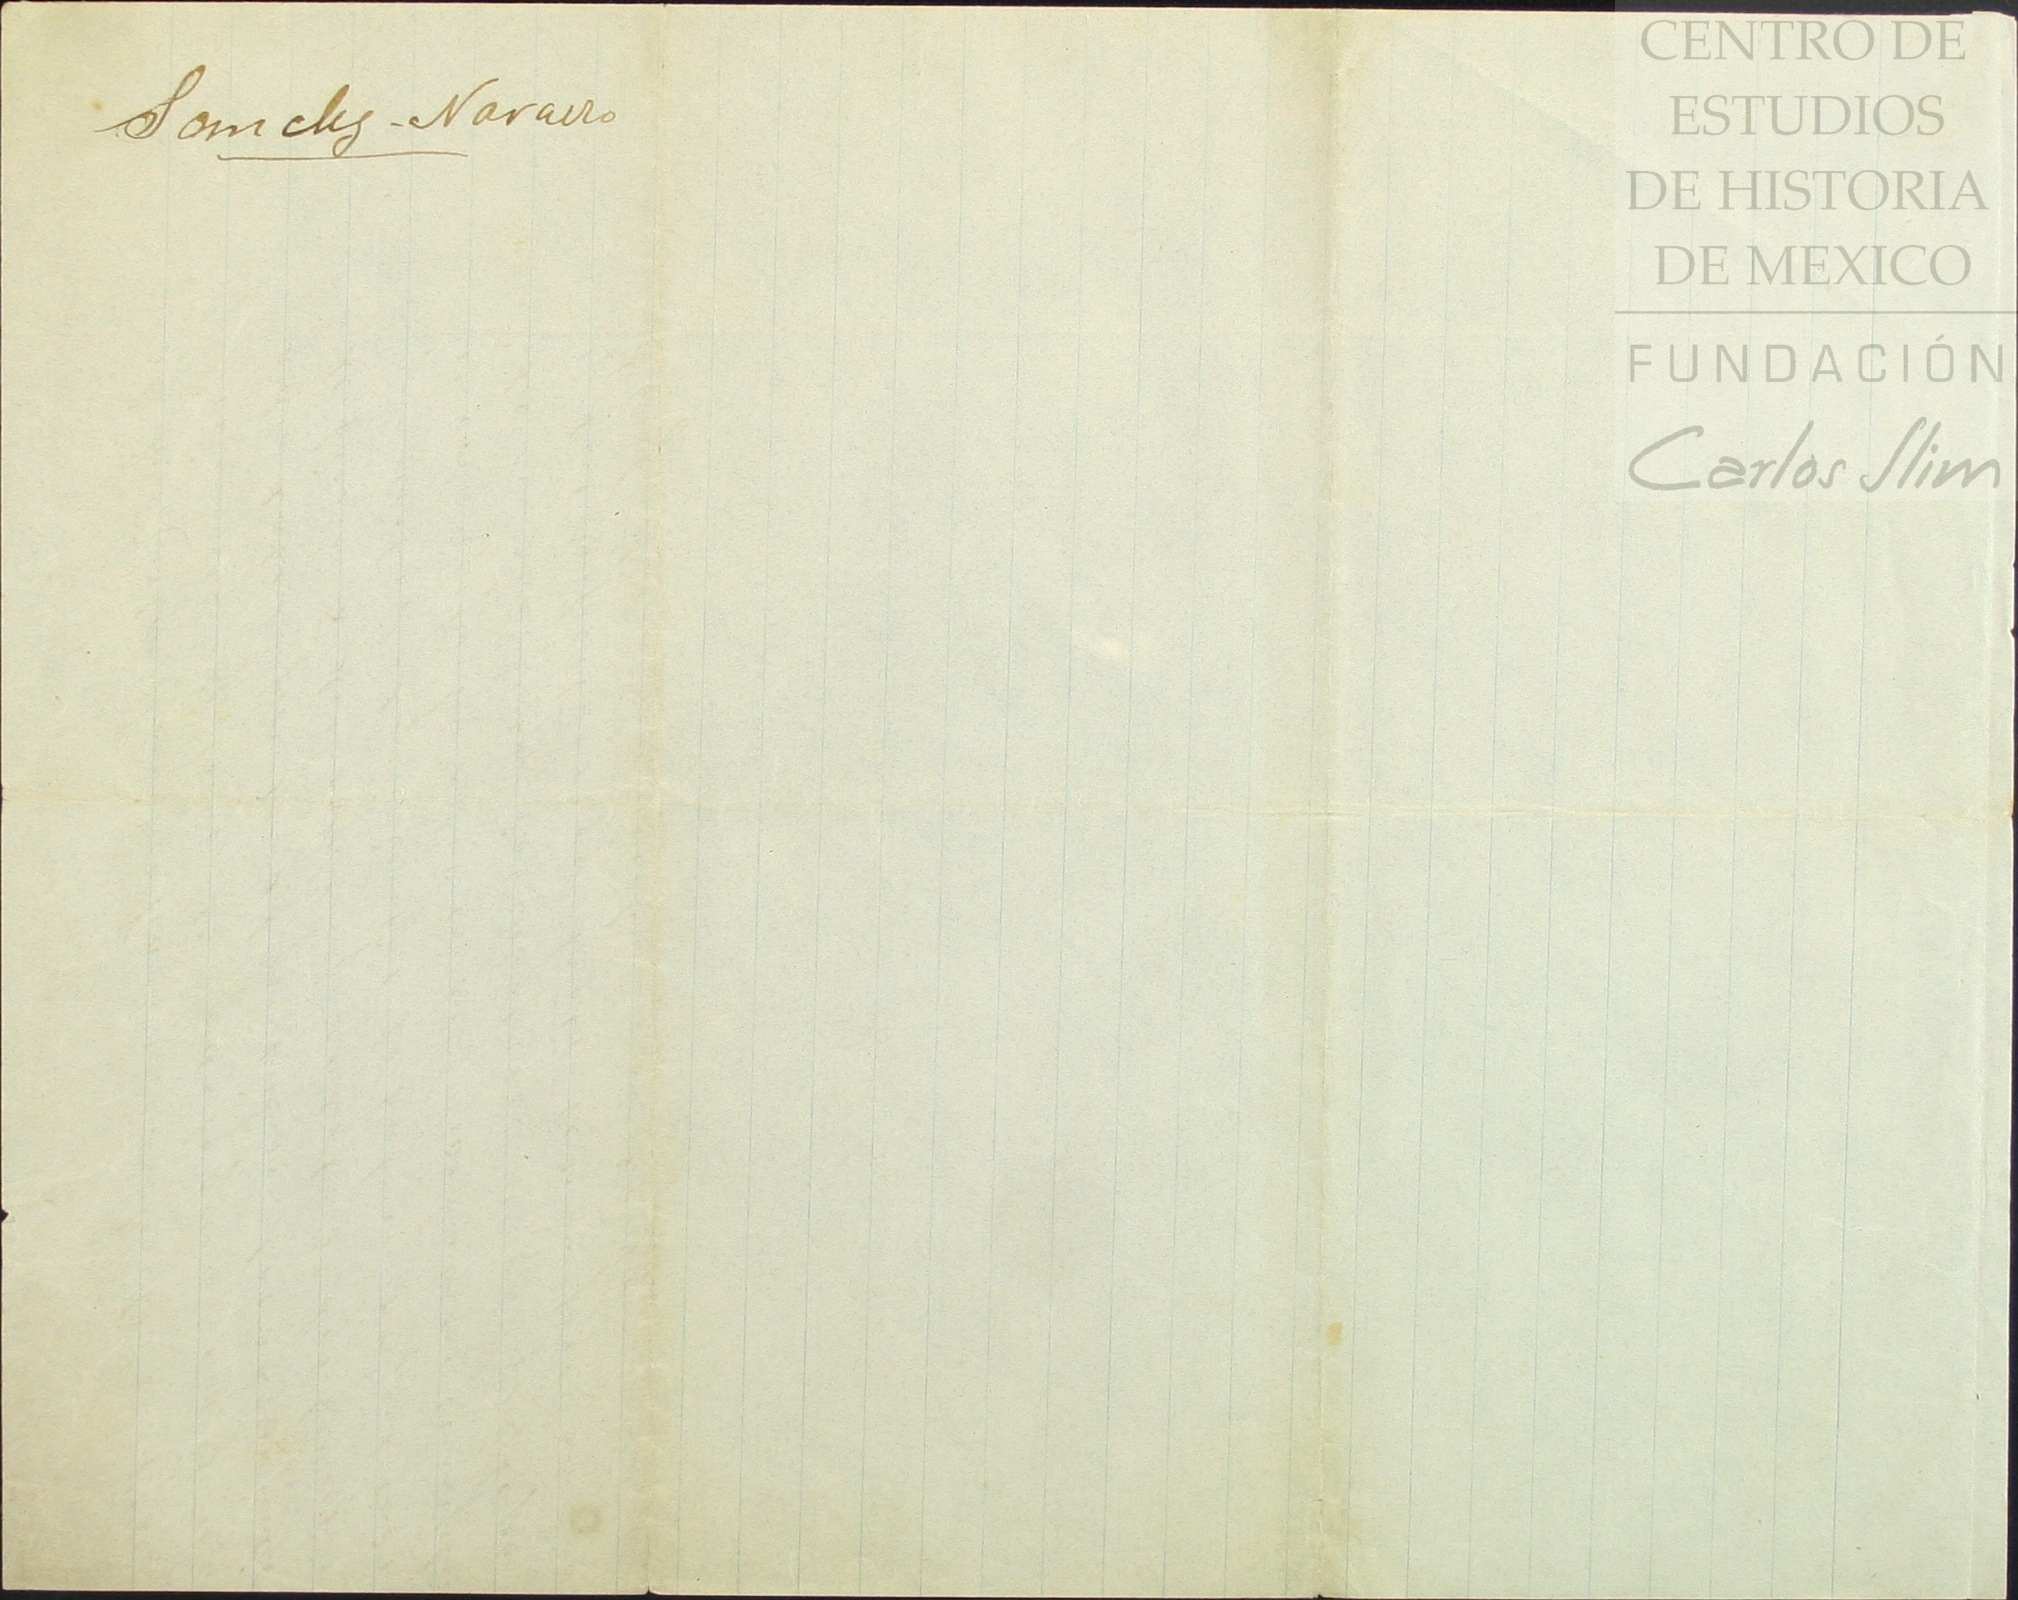 Sanchez-Navarro
CENTRO DE
ESTUDIOS
DE HISTORIA
DE MEXICO
FUNDACIÓN
Carlos Slim